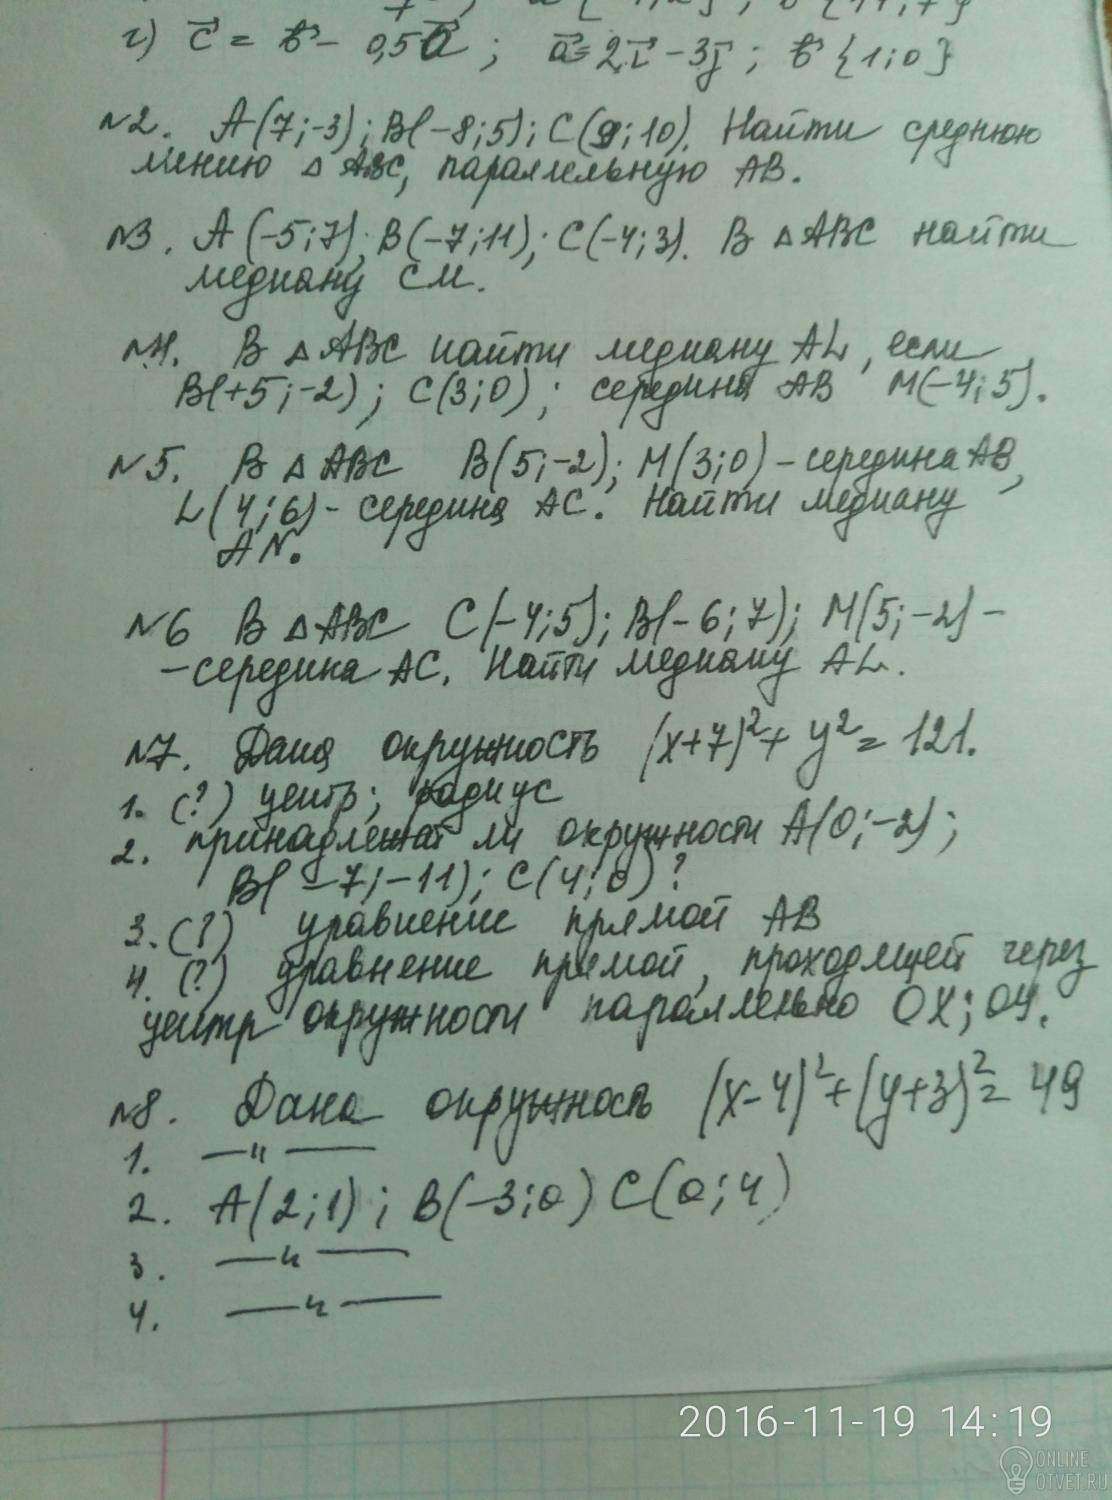 г) c⃗ = b⃗ - 0,5a⃗ ; a⃗ = 2i⃗ - 3j⃗ ; b⃗ {1;0}
№2. A(7;-3); B(-8;5); C(9;10). Найти среднюю
линию △ ABC, параллельную AB.
№3. A(-5;7); B(-7;11); C(-4;3). В △ABC найти
медиану CM.
№4. В △ABC найти медиану AL, если
B(+5;-2); C(3;0); середина AB M(-4;5).
№5. В △ABC B(5;-2); M(3;0) - середина AB,
L(4;6) - середина AC. Найти медиану
AN.
№6 В △ABC C(-4;5); B(-6;7); M(5;-2) -
- середина AC. Найти медиану AL.
№7. Дана окружность (x+7)²+ y²= 121.
1. (?) центр; радиус
2. принадлежат ли окружности A(0;-2);
B(-7;-11); C(4;0)?
3. (?) уравнение прямой AB
4. (?) уравнение прямой, проходящей через
центр окружности параллельно OX; OY.
№8. Дана окружность (x-4)²+(y+3)²= 49
1. —"—
2. A(2;1); B(-3;0) C(0;4)
3. —"—
4. —"—
2016-11-19 14:19
ONLINE
OTVET.RU